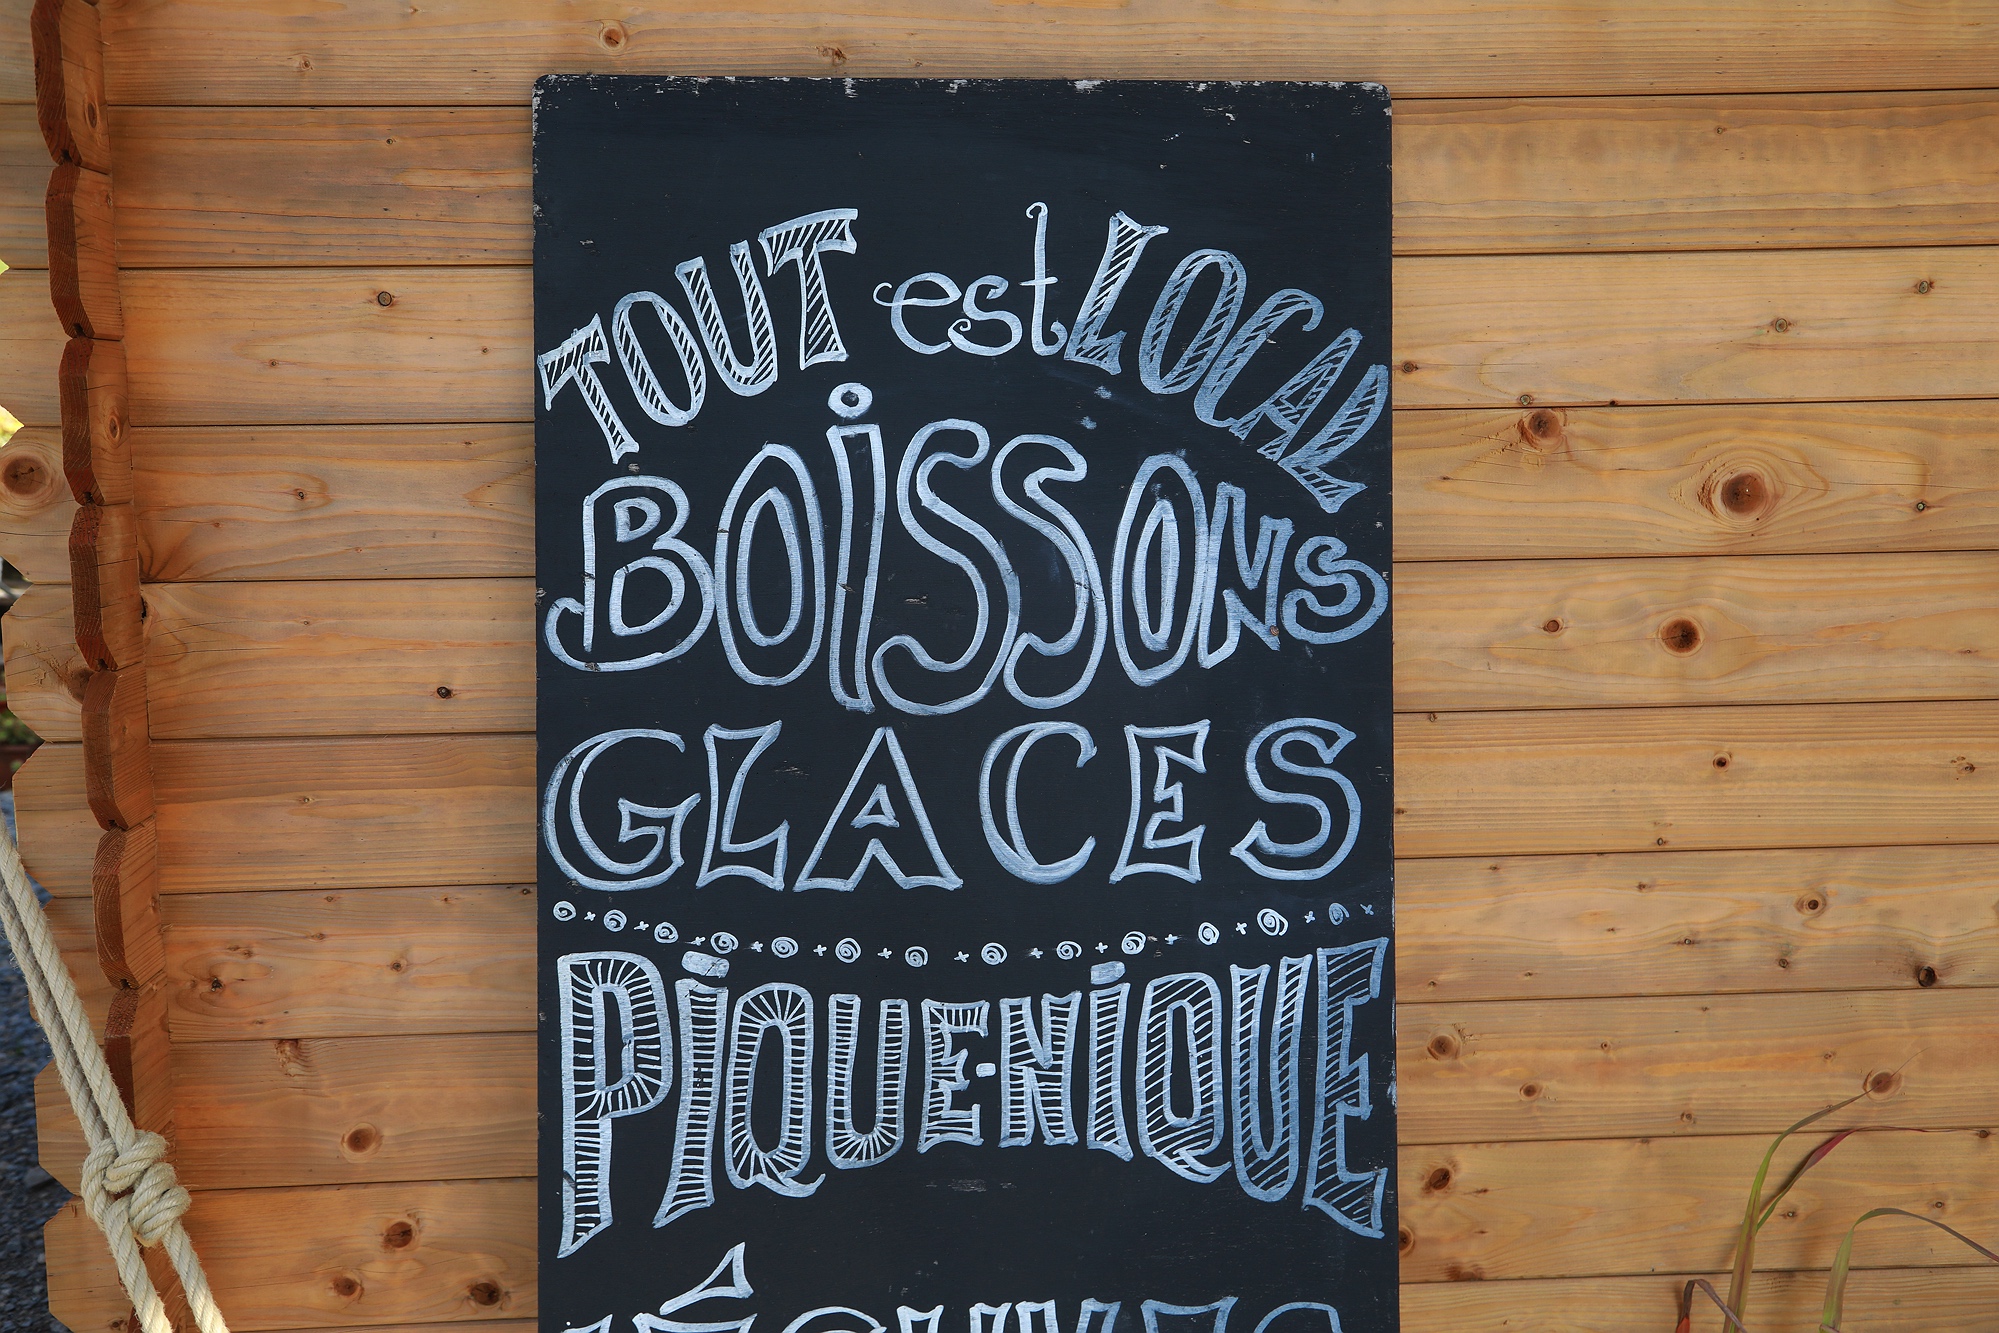 TOUT est LOCAL
BOiSSONS
GLACES
PiQUE-NiQUE